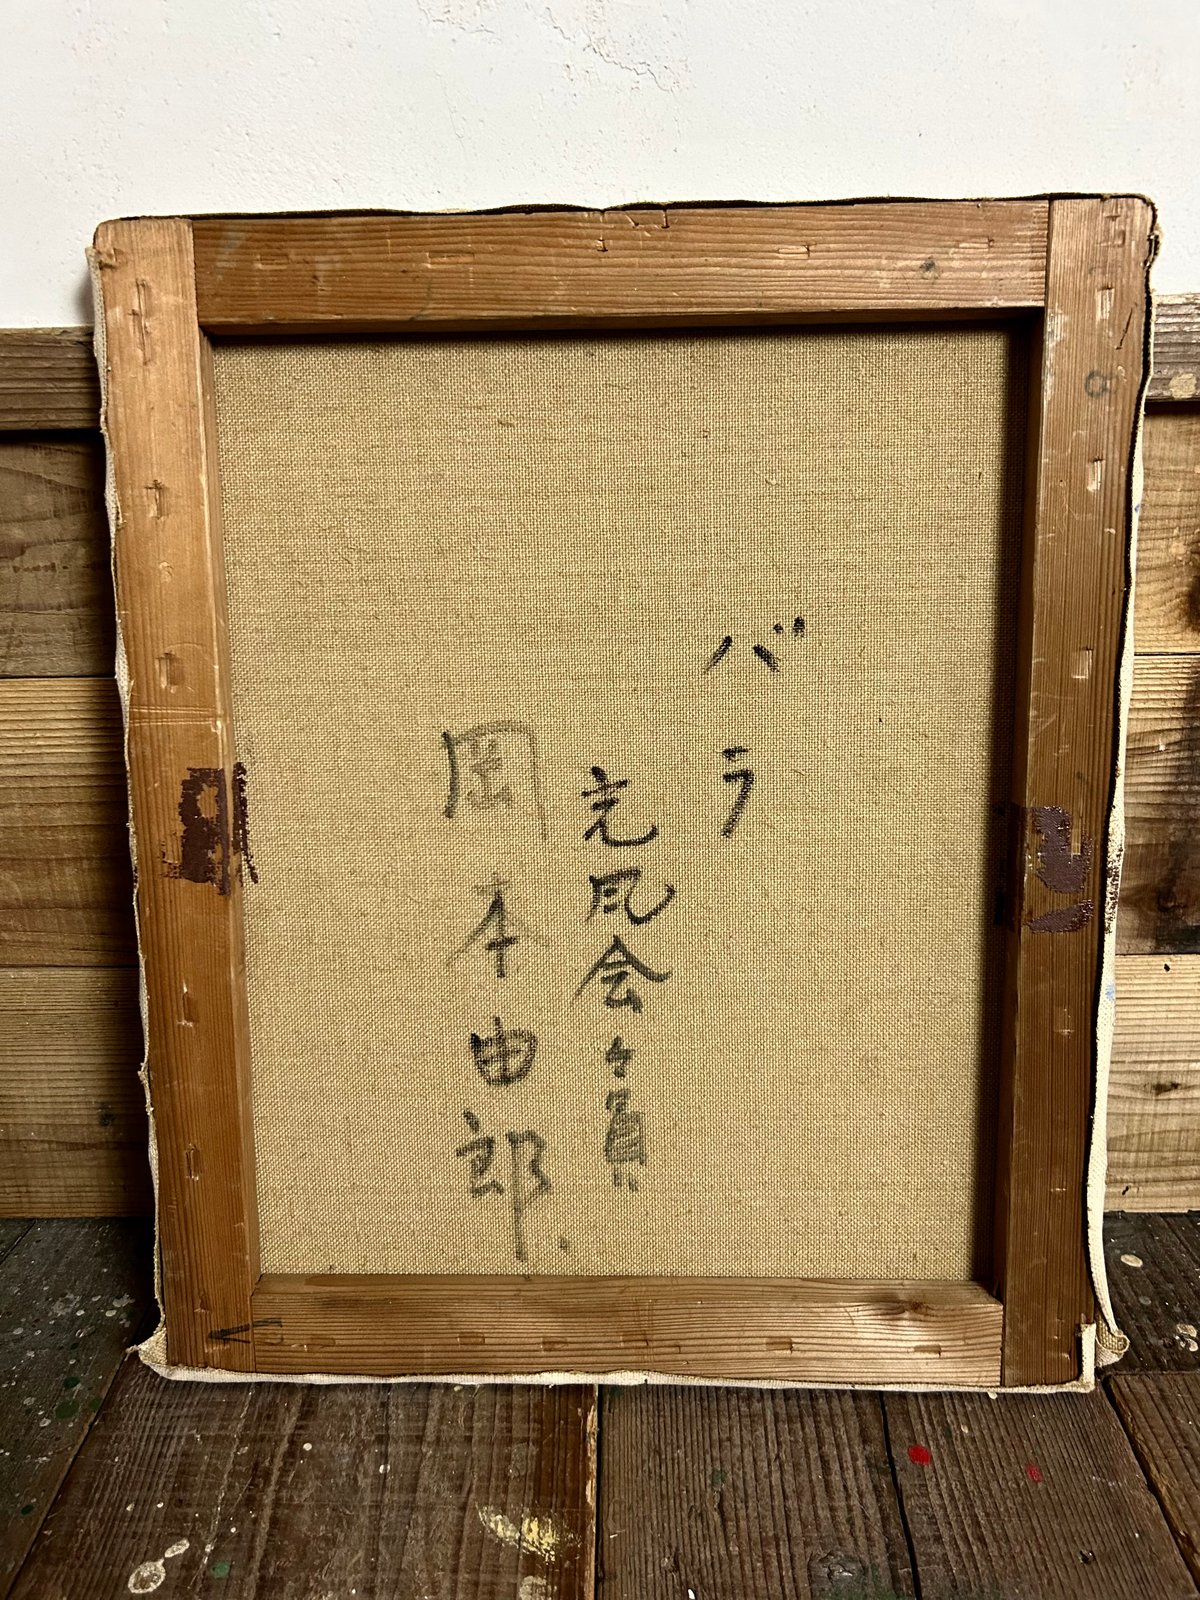 バラ
光風会々員
岡本由郎